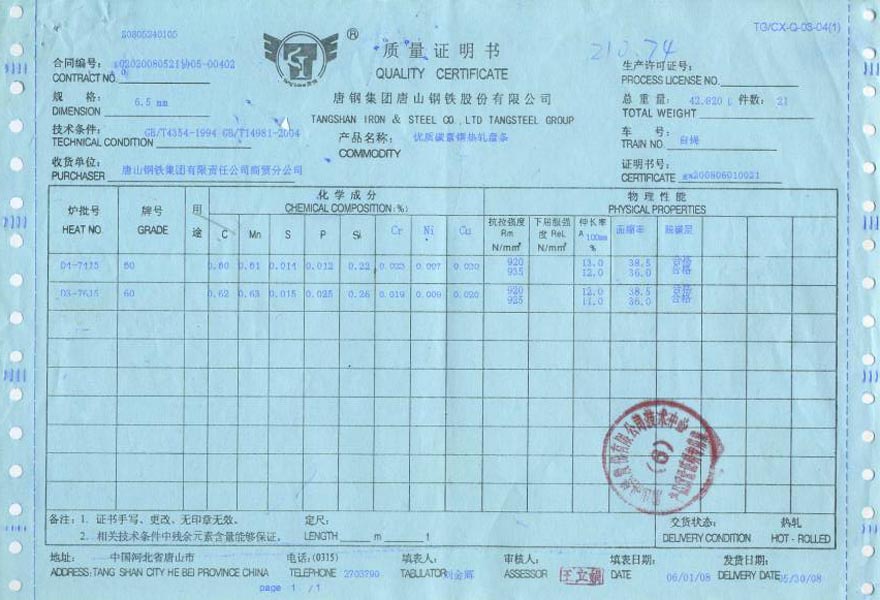 S0805240105
TG/CX-Q-03-04(1)
210.74
质量证明书
QUALITY CERTIFICATE
合同编号: s02020080521协05-00402
CONTRACT NO.
生产许可证号:
PROCESS LICENSE NO.
规 格: 6.5 mm
DIMENSION
唐钢集团唐山钢铁股份有限公司
总 重 量: 42.020 t 件数: 21
TOTAL WEIGHT
TANGSHAN IRON & STEEL CO., LTD TANGSTEEL GROUP
技术条件: GB/T4354-1994 GB/T14981-2004
TECHNICAL CONDITION
产品名称: 优质碳素钢热轧盘条
COMMODITY
车 号: 自提
TRAIN NO.
收货单位: 唐山钢铁集团有限责任公司商贸分公司
PURCHASER
证明书号:
CERTIFICATE gx200806010021
化学成分 物理性能
CHEMICAL COMPOSITION(%) PHYSICAL PROPERTIES
炉批号 牌号 用途 抗拉强度 下屈服强度 伸长率 面缩率 脱碳层
HEAT NO. GRADE C Mn S P Si Cr Ni Cu Rm N/mm² ReL N/mm² A 100mm %
D4-7475 60 0.60 0.61 0.014 0.012 0.22 0.023 0.007 0.030 920 13.0 38.5 合格
935 12.0 36.0 合格
D3-7615 60 0.62 0.63 0.015 0.025 0.26 0.019 0.009 0.020 920 12.0 38.5 合格
925 11.0 36.0 合格
备注: 1. 证书手写、更改、无印章无效。 定尺:
2. 相关技术条件中残余元素含量能够保证。 LENGTH m t
交货状态: 热轧
DELIVERY CONDITION HOT - ROLLED
地址: 中国河北省唐山市 电话:(0315) 填表人: 审核人: 填表日期: 发货日期:
ADDRESS:TANG SHAN CITY HE BEI PROVINCE CHINA TELEPHONE 2703790 TABULATOR 刘金辉 ASSESSOR 王立娟 DATE 06/01/08 DELIVERY DATE 05/30/08
page 1 /1